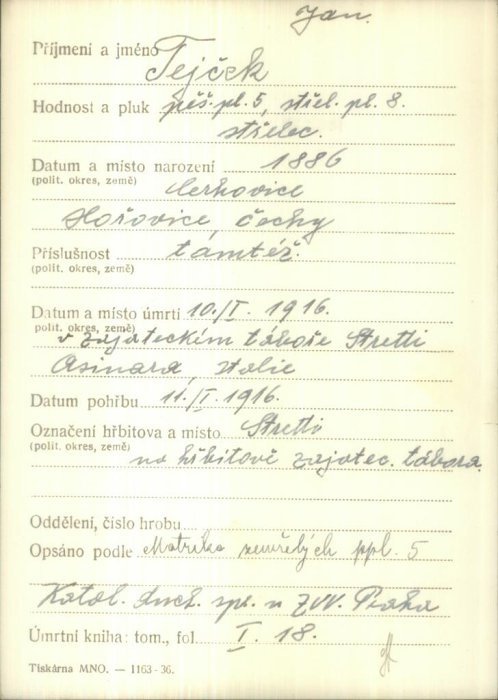 Jan.
Příjmení a jméno Tejček
Hodnost a pluk pěš. pl. 5, střel. pl. 8.
střelec.
Datum a místo narození 1886
(polit. okres, země) Cerhovice
Hořovice, Čechy
Příslušnost tamtéž.
(polit. okres, země)
Datum a místo úmrtí 10./I. 1916.
polit. okres, země)
v zajateckém táboře Stretti
Asinara, Italie
Datum pohřbu 11./I. 1916.
Označení hřbitova a místo Stretti
(polit. okres, země)
na hřbitově zajatec. tábora
Oddělení, číslo hrobu
Opsáno podle Matrika zemřelých ppl. 5
Katol. duch. spr. u ZVV. Praha
Úmrtní kniha: tom., fol. I. 18.
Tiskárna MNO. — 1163-36.